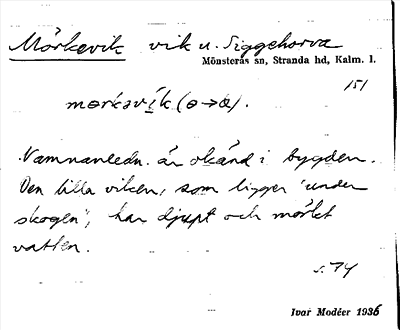 Mörkevik vik u. Siggehorva
Mönsterås sn, Stranda hd, Kalm. l.
151
mørkavík (ø→ö).
Namnanledn. är okänd i bygden.
Den lilla viken, som ligger "under
skogen", har djupt och mörkt
vatten.
s. 74
Ivar Modéer 1936